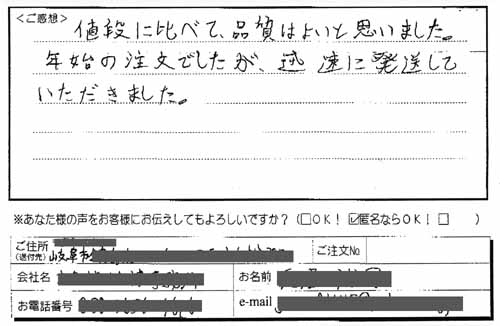 <ご感想>
値段に比べて、品質はよいと思いました。
年始の注文でしたが、迅速に発送して
いただきました。
※あなた様の声をお客様にお伝えしてもよろしいですか？(□OK！ ☑匿名ならOK！ □　　)
ご住所
(送付先)
岐阜市
ご注文No
会社名
お名前
お電話番号
e-mail